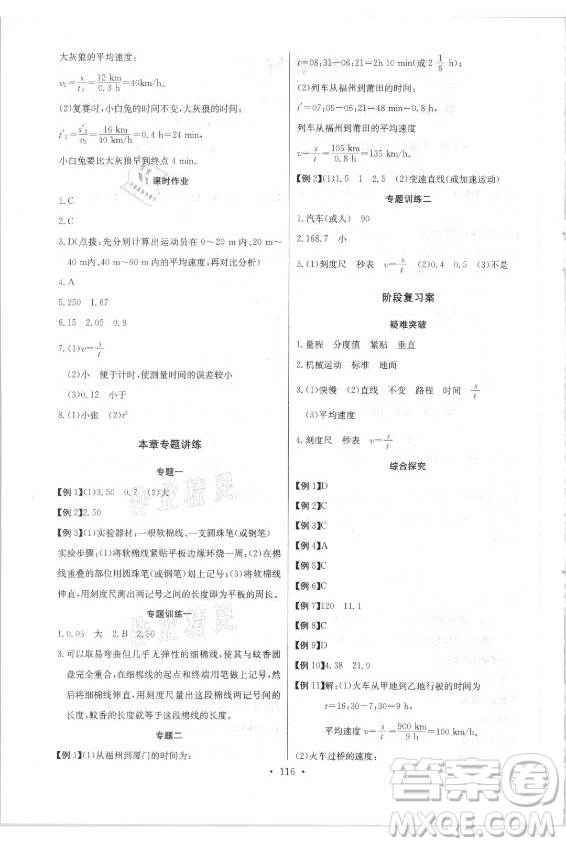 大灰狼的平均速度：
v₂=s/t₂=12 km/0.3 h=40km/h.
(2)复赛时，小白兔的时间不变，大灰狼的时间：
t′₂=s′₂/v₂=16 km/40 km/h=0.4 h=24 min,
小白兔要比大灰狼早到终点 4 min.
课时作业
1.C
2.C
3.D(点拨：先分别计算出运动员在 0～20 m 内、20～40 m 内……80～100 m 内的平均速度，再对比分析)
4.A
5.250 1.67
6.15 2.05 0.9
7.(1)v=s/t
(2)小 便于计时，使测量时间的误差较小
(3)0.12 小于
8.(1)小张 (2)t²
本章专题讲练
专题一
【例 1】(1)3.50 0.7 (2)大
【例 2】2.50
【例 3】(1)实验器材：一根软棉线，一支圆珠笔(或钢笔)
实验步骤：(2)将软棉线紧贴平板边缘环绕一周；(2)在棉
线重叠的部位用圆珠笔(或钢笔)划上记号；(3)将棉线伸
直，用刻度尺测出两记号间的长度即为平板的周长。
专题训练一
1.0.05 大 2.B 2.50
3.可以取易弯曲但几乎无弹性的细棉线，使其与蚊香圆
盘完全重合，在细棉线的起点和终端用笔做上记号，然
后轻轻将细棉线伸直，用刻度尺量出这段棉线两记号间的长
度，蚊香的长度就等于这段棉线的长度。
专题二
【例 1】(1)从福州到厦门的时间为：
t=08:31-06:21=2h 10 min(或 2 1/6 h)
(2)列车从福州到莆田的时间：
t′=07:09-06:21=48 min=0.8 h
列车从福州到莆田的平均速度
v=s/t=105 km/0.8 h=135 km/h.
【例 2】(1)1.5 1 2.5 (2)变速直线(或加速运动)
专题训练二
1.汽车(或人) 90
2.168.7 小
3.(1)刻度尺 秒表 v=s/t (2)0.4 0.5 (3)不是
阶段复习案
疑难突破
1.量程 分度值 紧贴 垂直
2.机械运动 标准 地面
3.(1)快慢 (2)直线 不变 路程 时间 s/t
(3)平均速度
4.刻度尺 秒表 v=s/t
综合探究
【例 1】D
【例 2】C
【例 3】C
【例 4】A
【例 5】C
【例 6】C
【例 7】120 11.1
【例 8】C
【例 9】D
【例 10】4.38 21.9
【例 11】解：(1)火车从甲地到乙地行驶的时间
t=16:30-7:30=9 h
平均速度 v=s/t=900 km/9 h=100 km/h
(2)火车过桥的速度：
• 116 •
作业精灵
作业精灵
答案圈
MXQE.COM